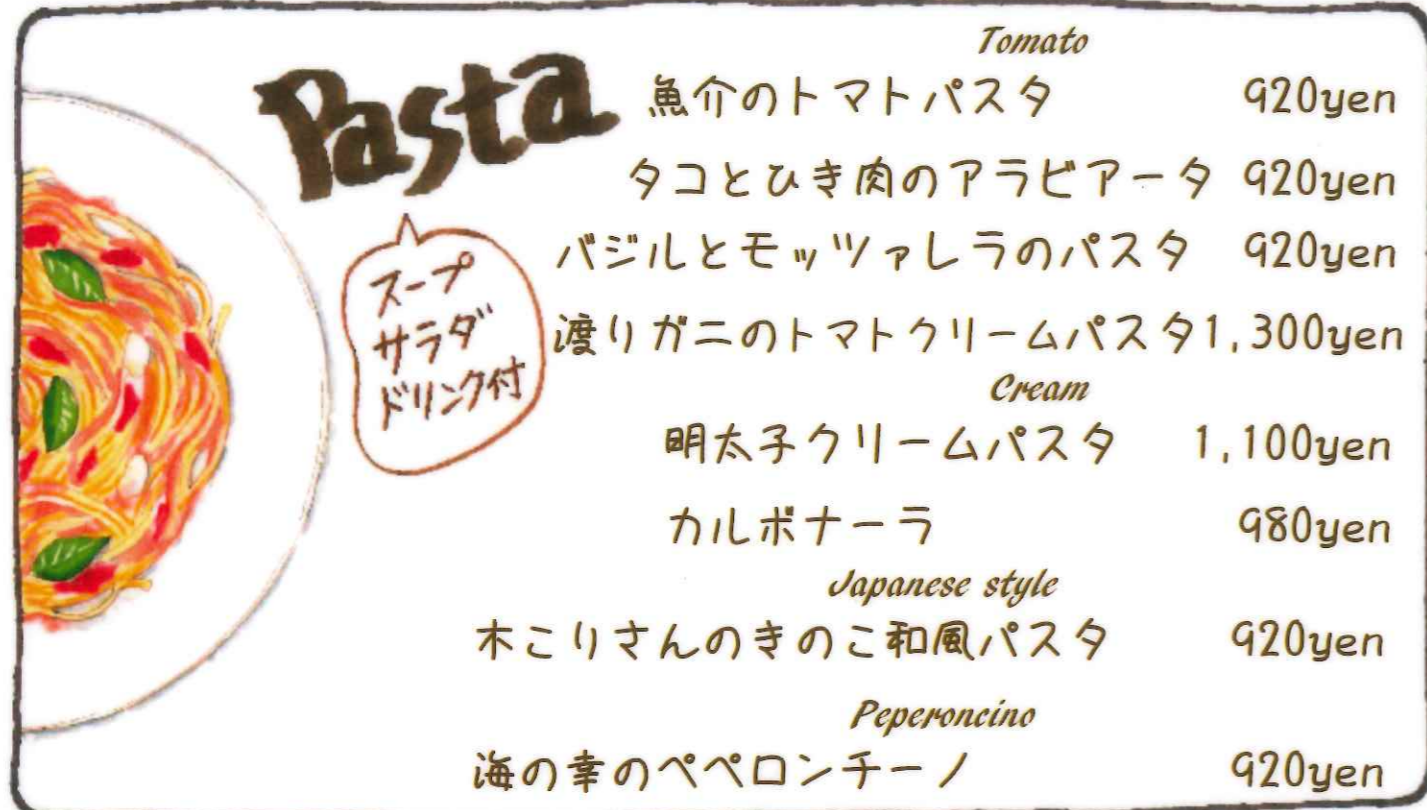 Pasta
スープ
サラダ
ドリンク付
Tomato
魚介のトマトパスタ 920yen
タコとひき肉のアラビアータ 920yen
バジルとモッツァレラのパスタ 920yen
渡りガニのトマトクリームパスタ1,300yen
Cream
明太子クリームパスタ 1,100yen
カルボナーラ 980yen
Japanese style
木こりさんのきのこ和風パスタ 920yen
Peperoncino
海の幸のペペロンチーノ 920yen